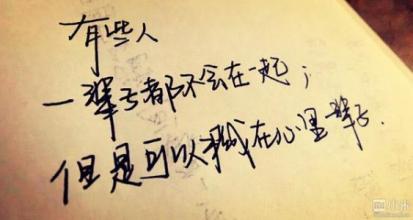 有些人
一辈子都不会在一起；
但是可以藏在心里一辈子.